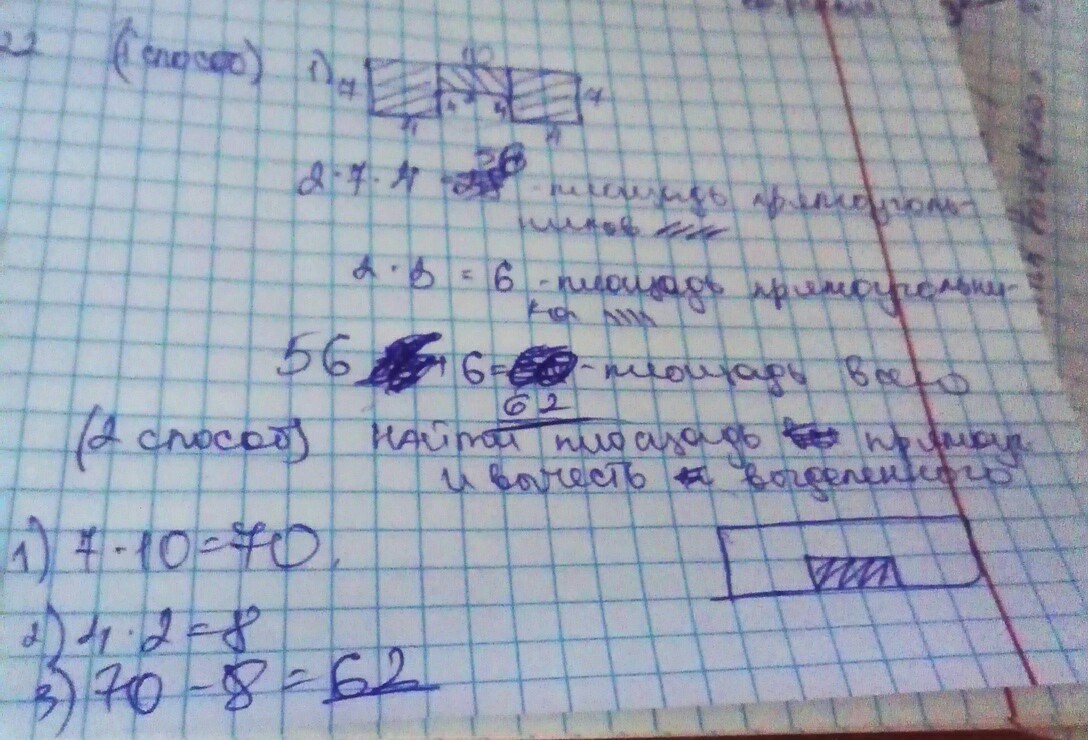 22 (1 способ) 1)
10
7 7
4 4
4 4
2·7·4 56 - площадь прямоуголь-
ников
2·3 = 6 - площадь прямоугольни-
ка
56 + 6 = - площадь всего
62
(2 способ) найти площадь прямоуг
и вычесть выделенного
1) 7·10=70.
2) 4·2=8
3) 70-8=62